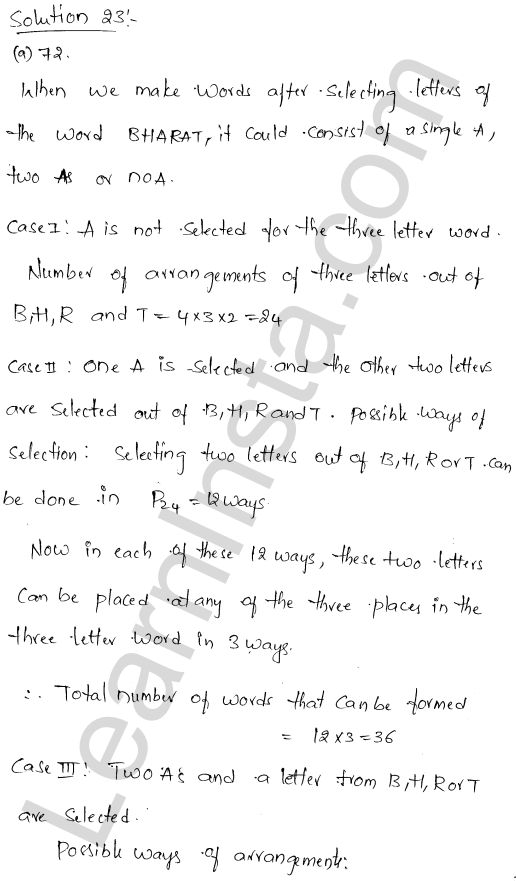 Solution 23:-
(a) 72.
When we make words after selecting letters of
the word BHARAT, it could consist of a single A,
two As or no A.
Case I: A is not selected for the three letter word.
Number of arrangements of three letters out of
B,H,R and T = 4×3×2=24
Case II : One A is selected and the other two letters
are selected out of B,H,R and T. Possible ways of
selection: Selecting two letters out of B,H,R or T can
be done in P24 = 12 ways
Now in each of these 12 ways, these two letters
can be placed at any of the three places in the
three letter word in 3 ways.
∴ Total number of words that can be formed
= 12×3=36
Case III: Two A's and a letter from B,H,R or T
are selected.
Possible ways of arrangements:
LearnInsta.com